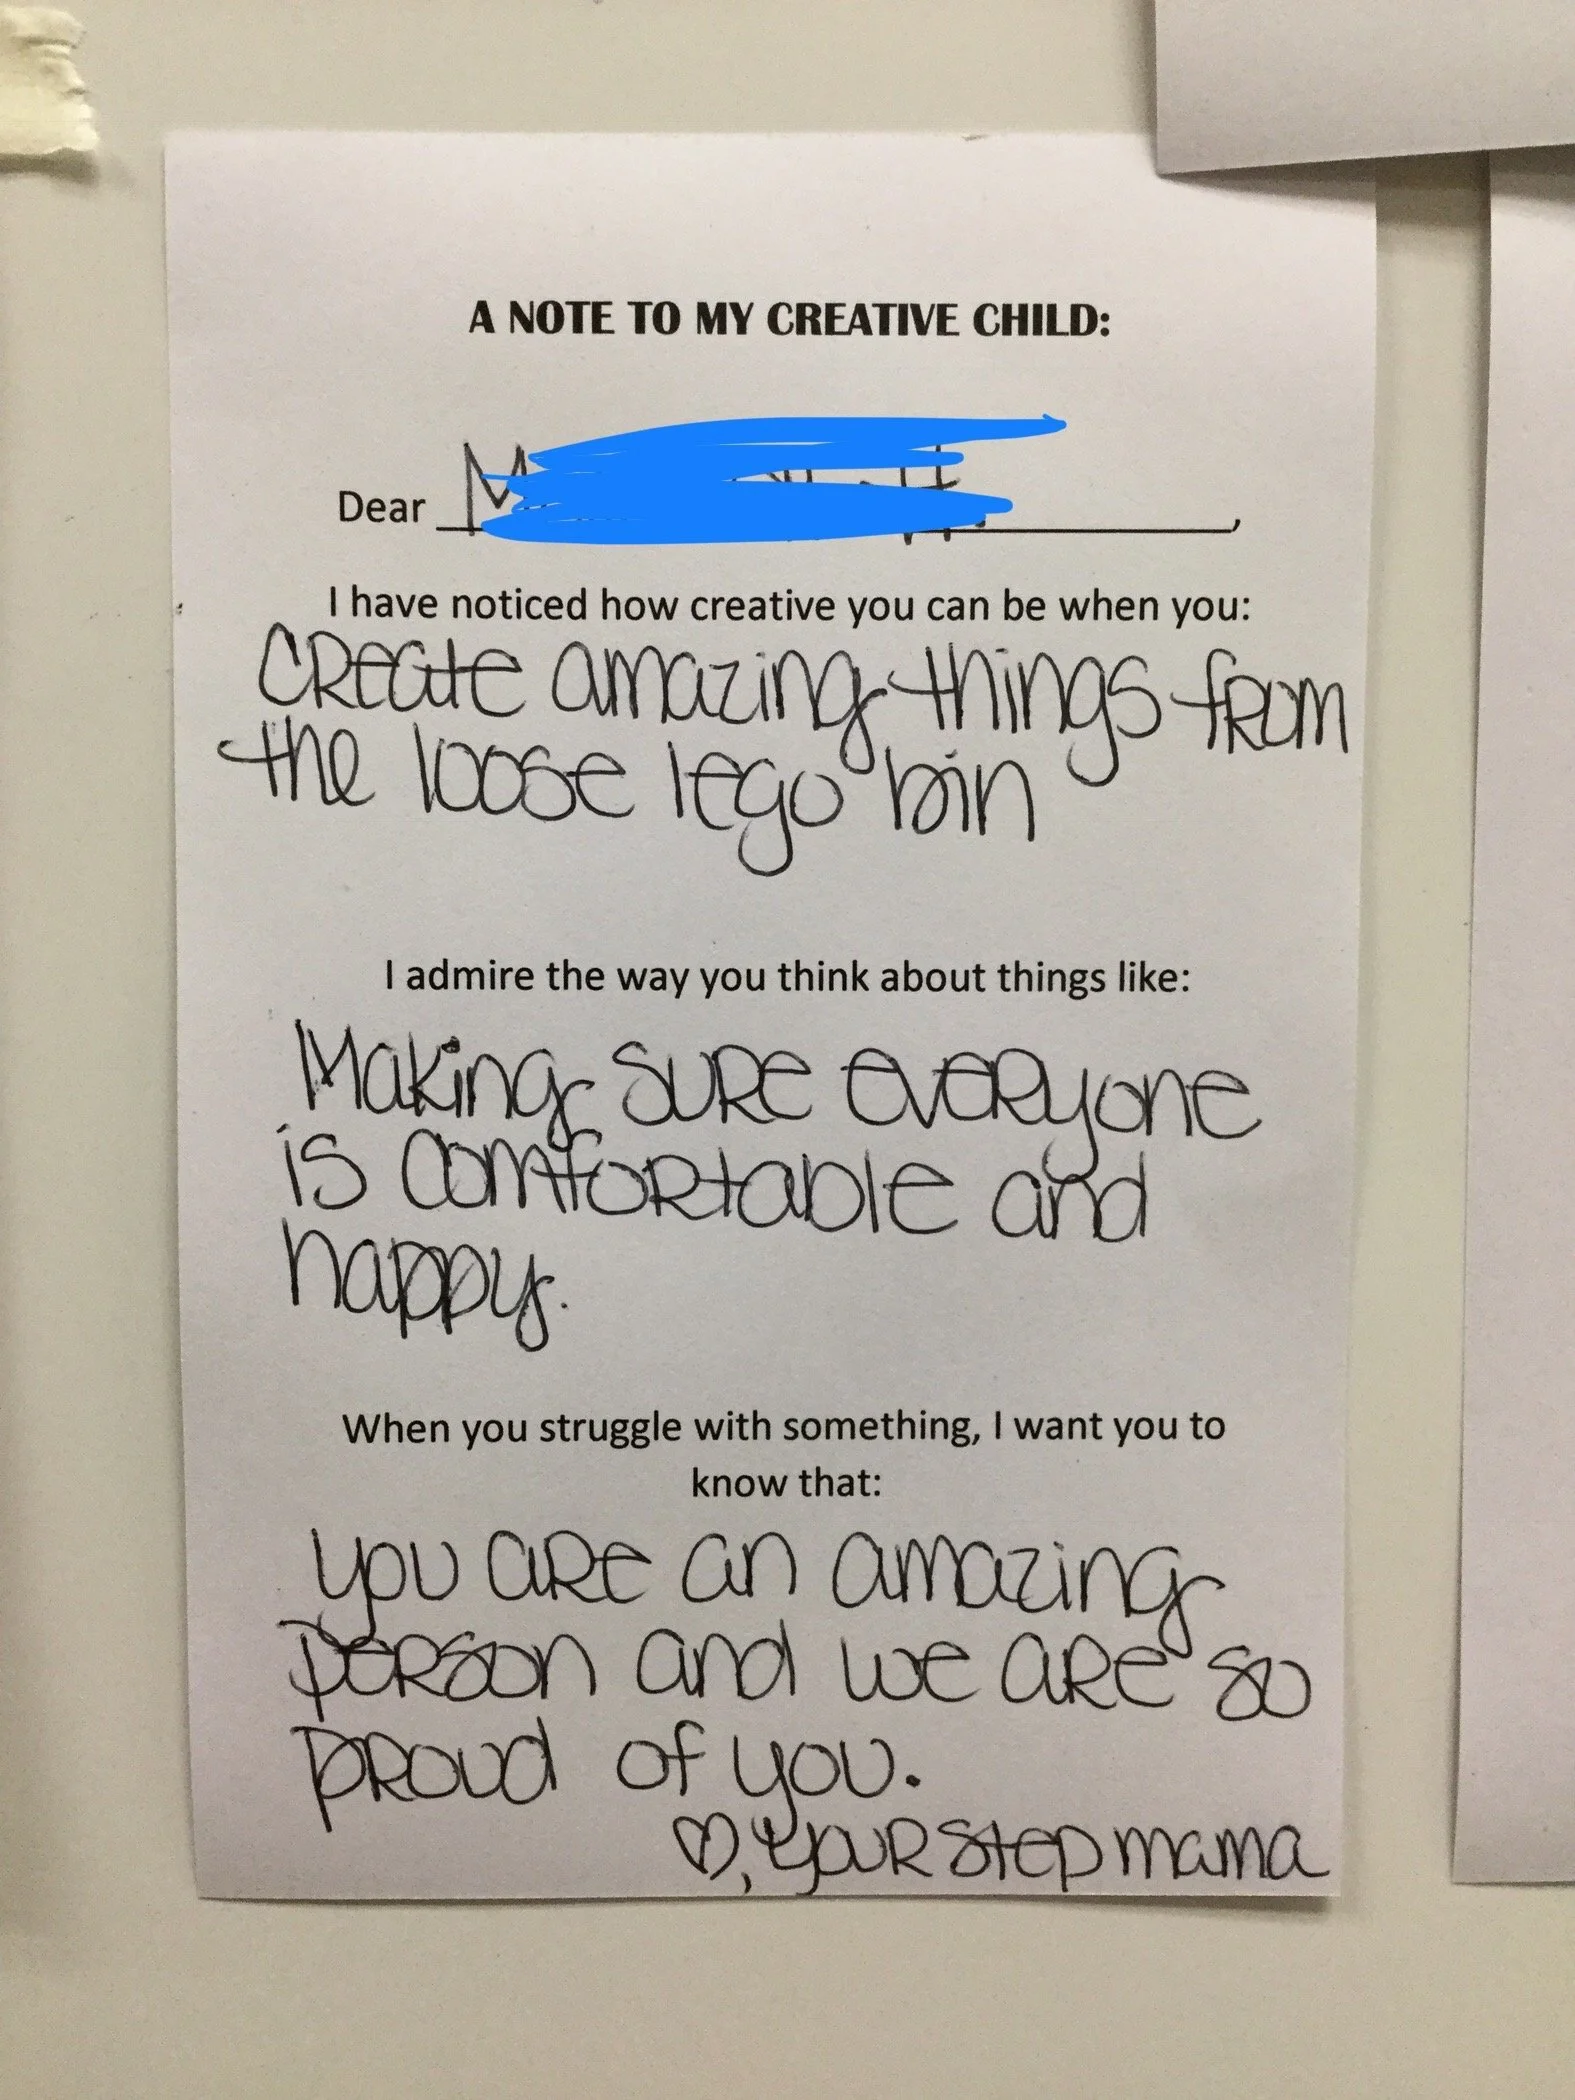 A NOTE TO MY CREATIVE CHILD:
Dear
I have noticed how creative you can be when you:
Create amazing things from
the loose lego bin
I admire the way you think about things like:
Making sure everyone
is comfortable and
happy.
When you struggle with something, I want you to
know that:
you are an amazing
person and we are so
proud of you.
♡, your step mama